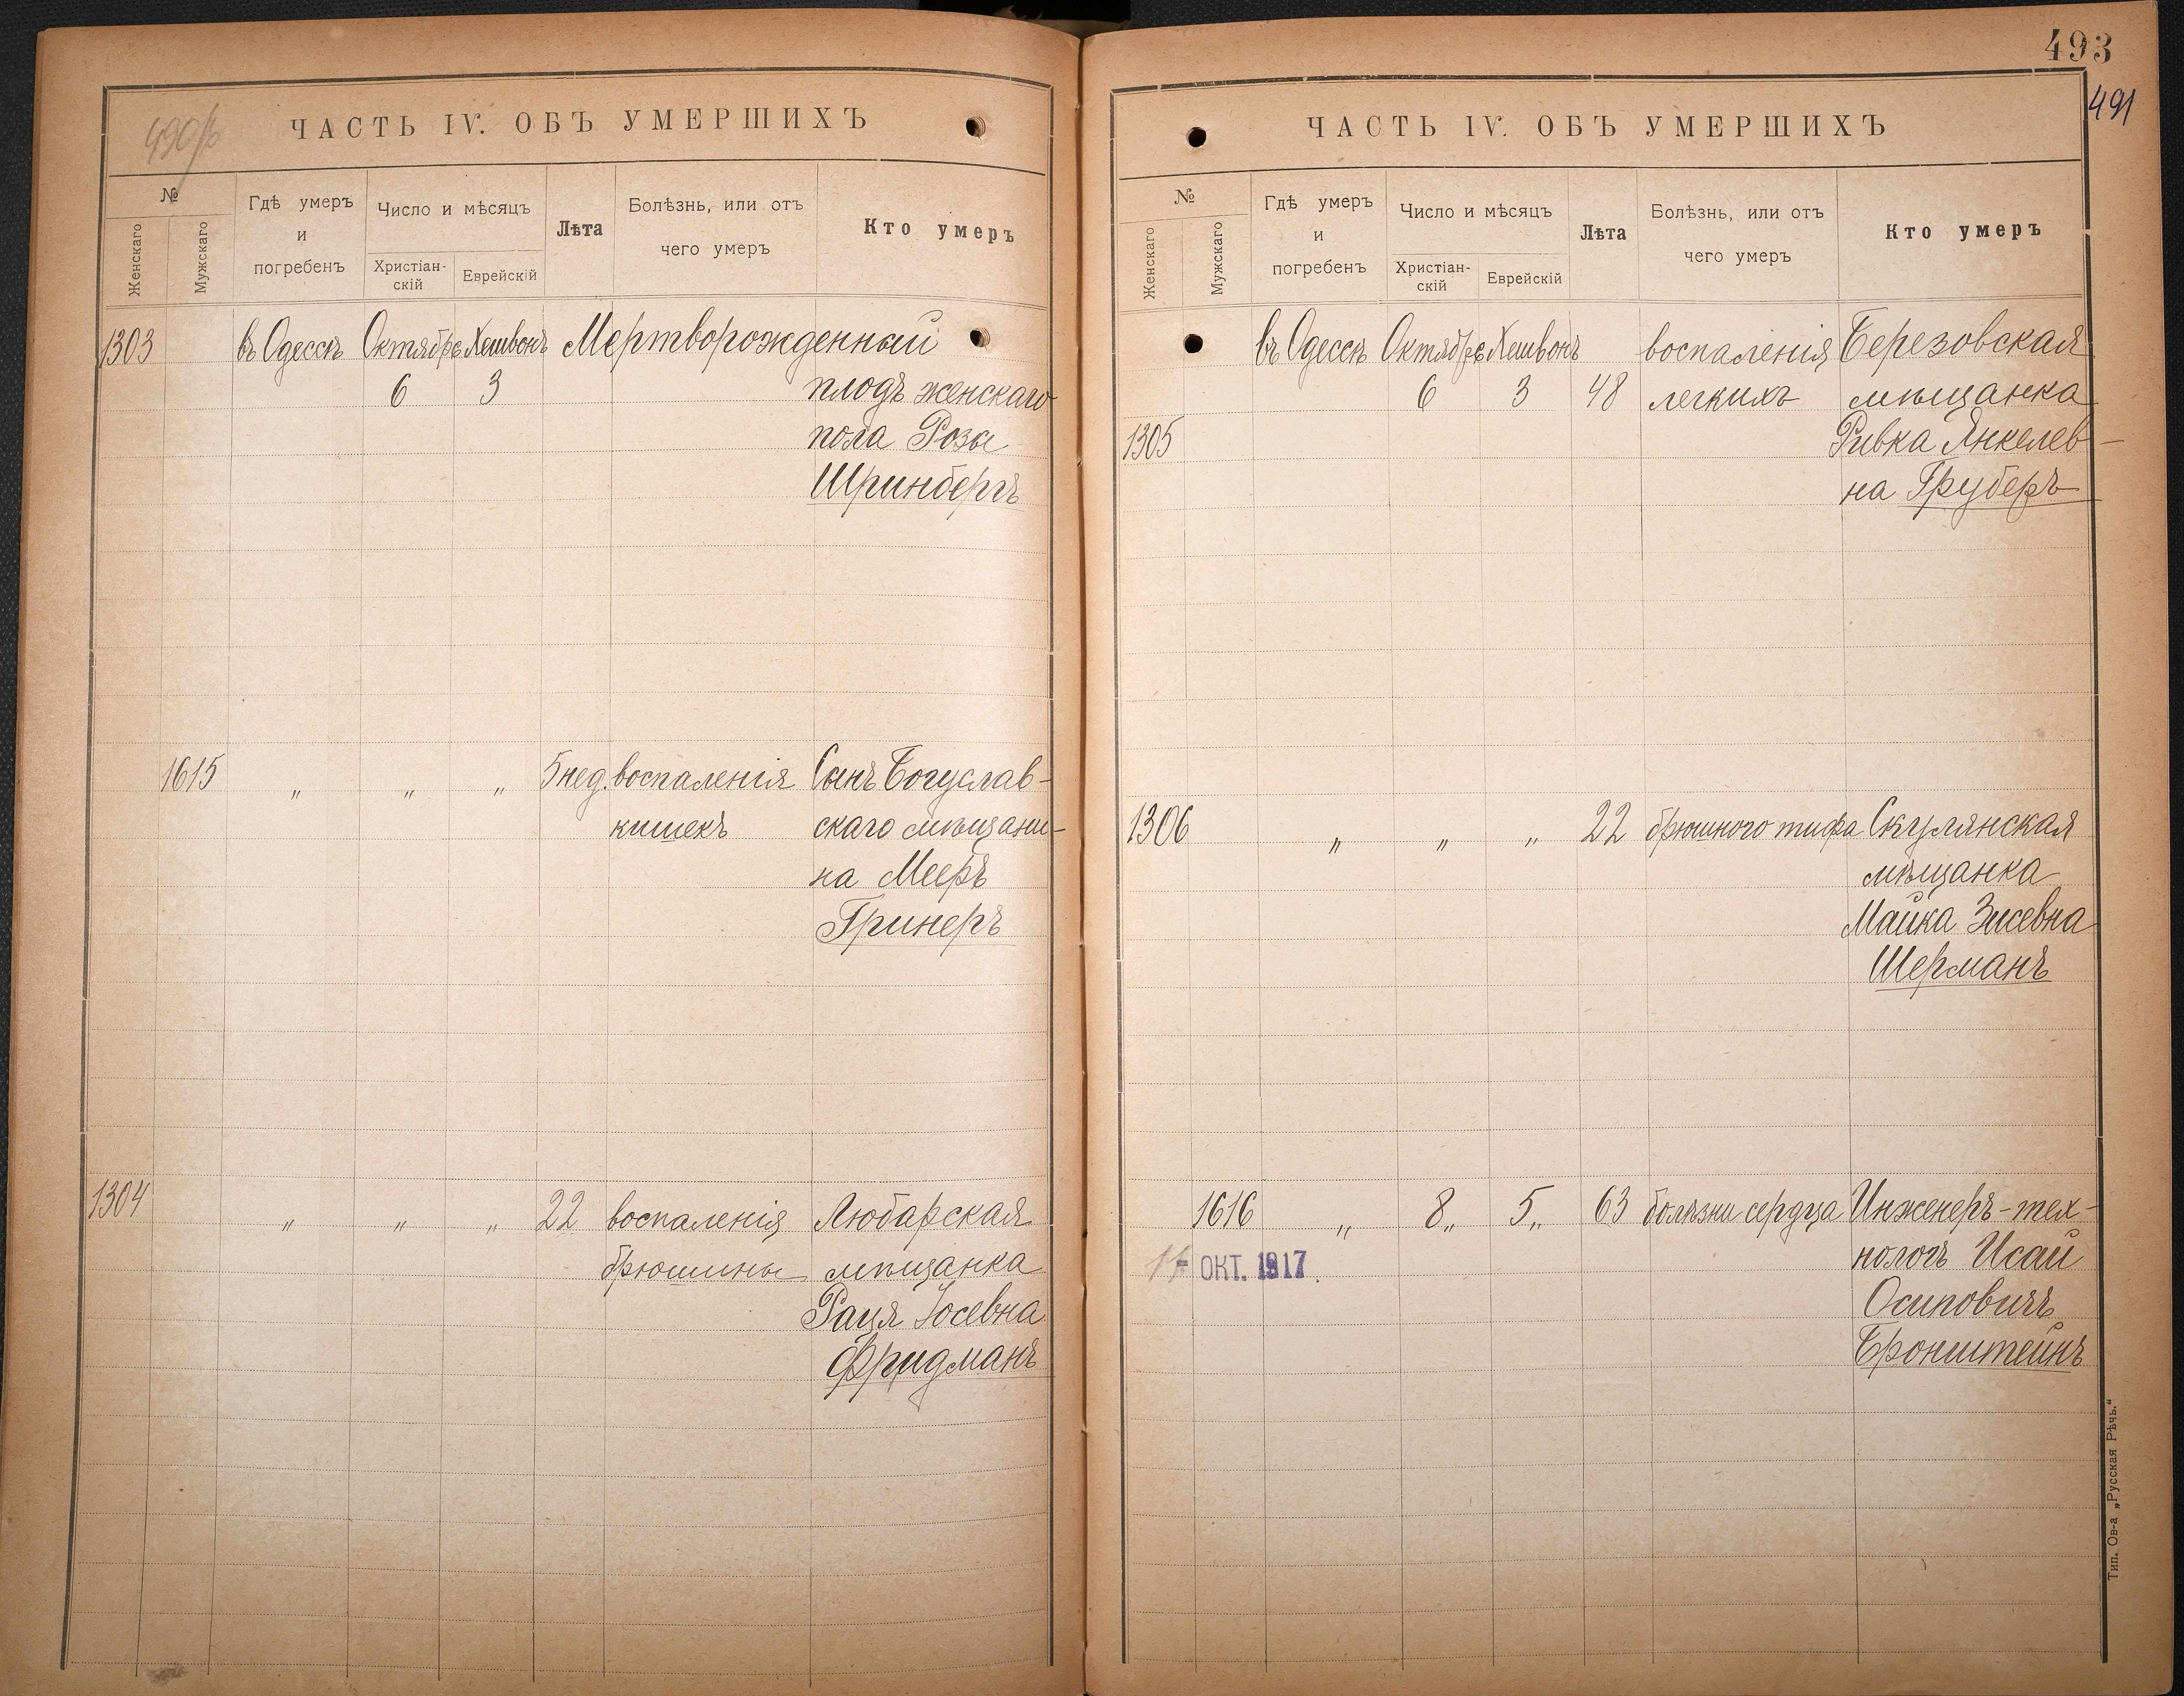 490/б
ЧАСТЬ IV. ОБЪ УМЕРШИХЪ
№
Женскаго
Мужскаго
Гдѣ умеръ
и
погребенъ
Число и мѣсяцъ
Христіан-
скій
Еврейскій
Лѣта
Болѣзнь, или отъ
чего умеръ
Кто умеръ
1303 въ Одессѣ Октябрь Хешвонъ Мертворожденный
6 3 плодъ женскаго
пола Розы
Шринбергъ
1615 „ „ „ 5 нед. воспаленія Сынъ Богуслав-
кишекъ скаго мѣщани-
на Мееръ
Гринеръ
1304 „ „ „ 22 воспаленія Любарская
брюшины мѣщанка
Рация Іосевна
Фридманъ
493
491
ЧАСТЬ IV. ОБЪ УМЕРШИХЪ
№
Женскаго
Мужскаго
Гдѣ умеръ
и
погребенъ
Число и мѣсяцъ
Христіан-
скій
Еврейскій
Лѣта
Болѣзнь, или отъ
чего умеръ
Кто умеръ
въ Одессѣ Октябрь Хешвонъ воспаленія Березовская
6 3 48 легкихъ мѣщанка
1305 Ривка Янкелев-
на Груберъ
1306 „ „ „ 22 брюшного тифа Скулянская
мѣщанка
Майка Зисевна
Шерманъ
1616 „ 8„ 5„ 63 болѣзни сердца Инженеръ-тех-
ОКТ. 1917 нологъ Исай
Осиповичъ
Бронштейнъ
Тип. Ов-а „Русская Рѣчь.“